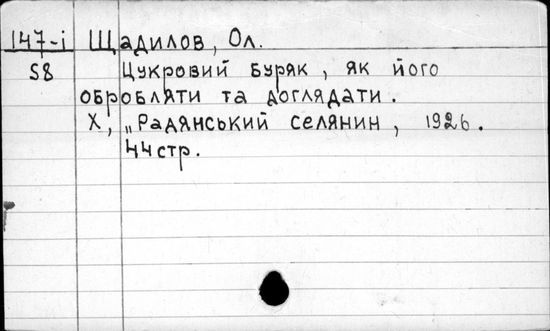 147-і Щадилов, Ол.
58 Цукровий буряк, як його
обробляти та доглядати.
Х, „Радянський селянин, 1926.
44стр.